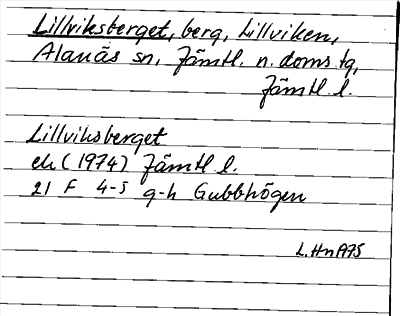 Lillviksberget, berg, Lillviken,
Alanäs sn, Jämtl. n. doms.tg,
Jämtl. l.
Lillviksberget
ek (1974) Jämtl l.
21 F 4-5 g-h Gubbhögen
L. Hn 1975